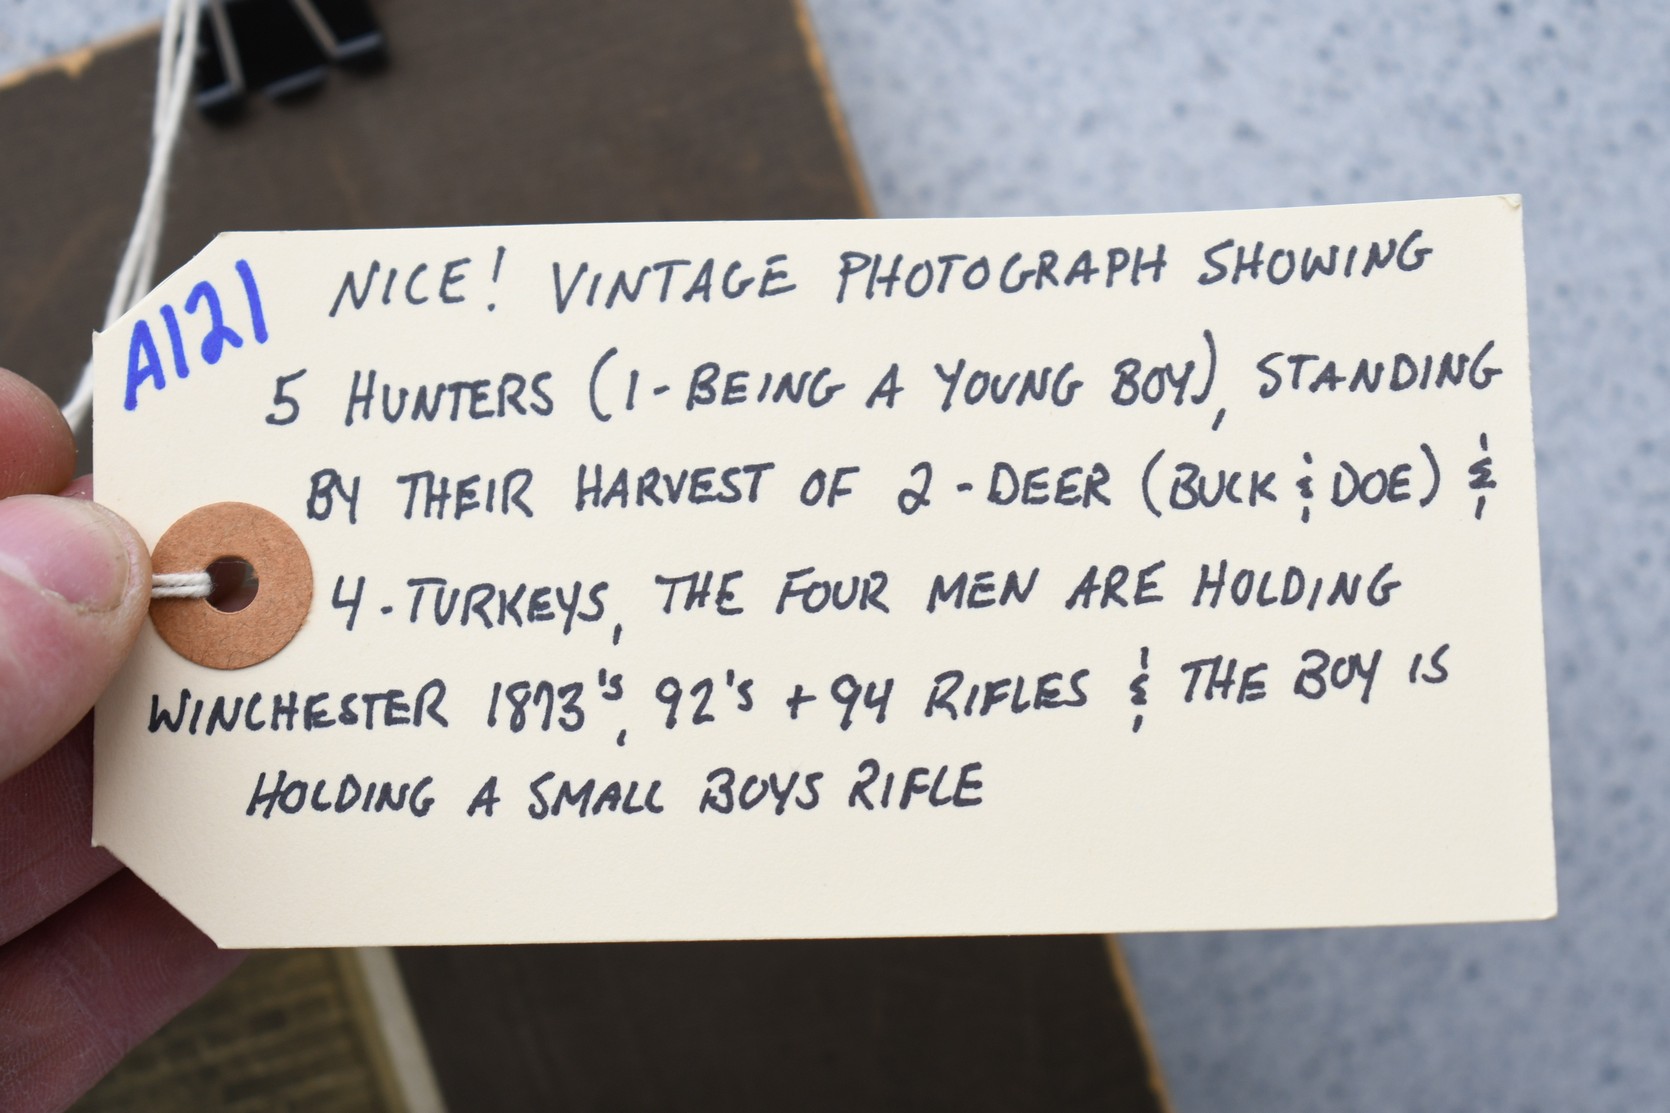 A121
NICE! VINTAGE PHOTOGRAPH SHOWING
5 HUNTERS (1-BEING A YOUNG BOY), STANDING
BY THEIR HARVEST OF 2-DEER (BUCK & DOE) &
4-TURKEYS, THE FOUR MEN ARE HOLDING
WINCHESTER 1873's, 92's + 94 RIFLES & THE BOY IS
HOLDING A SMALL BOYS RIFLE